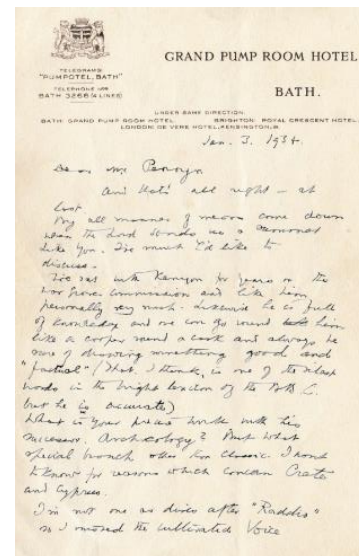 TELEGRAMS
"PUMPOTEL, BATH"
TELEPHONE Nos
BATH 3266 (4 LINES)
GRAND PUMP ROOM HOTEL
BATH.
UNDER SAME DIRECTION.
BATH: GRAND PUMP ROOM HOTEL. BRIGHTON: ROYAL CRESCENT HOTEL.
LONDON: DE VERE HOTEL, KENSINGTON, W.
Jan. 3. 1934.
Dear Mr
And that's all right – at
last.
all manner of means come down
when the Lord sends us a
like you. I've much I'd like to
discuss.
I've sat with Kenyon for years on the
War Graves Commission and like him
personally very much. Likewise he is full
of knowledge and one can go round him
like a cooper round a cask and always be
sure of drawing something good and
"factual" (That, I think, is one of the
words in the bright lexicon of the B.B.C.
but he is accurate)
What is your precise work with his
successor. Archaeology? But what
special branch other than Classic. I want
to know for reasons which concern Crete
and Cyprus.
I'm not one as dives after "Raddio"
so I missed the cultivated Voice